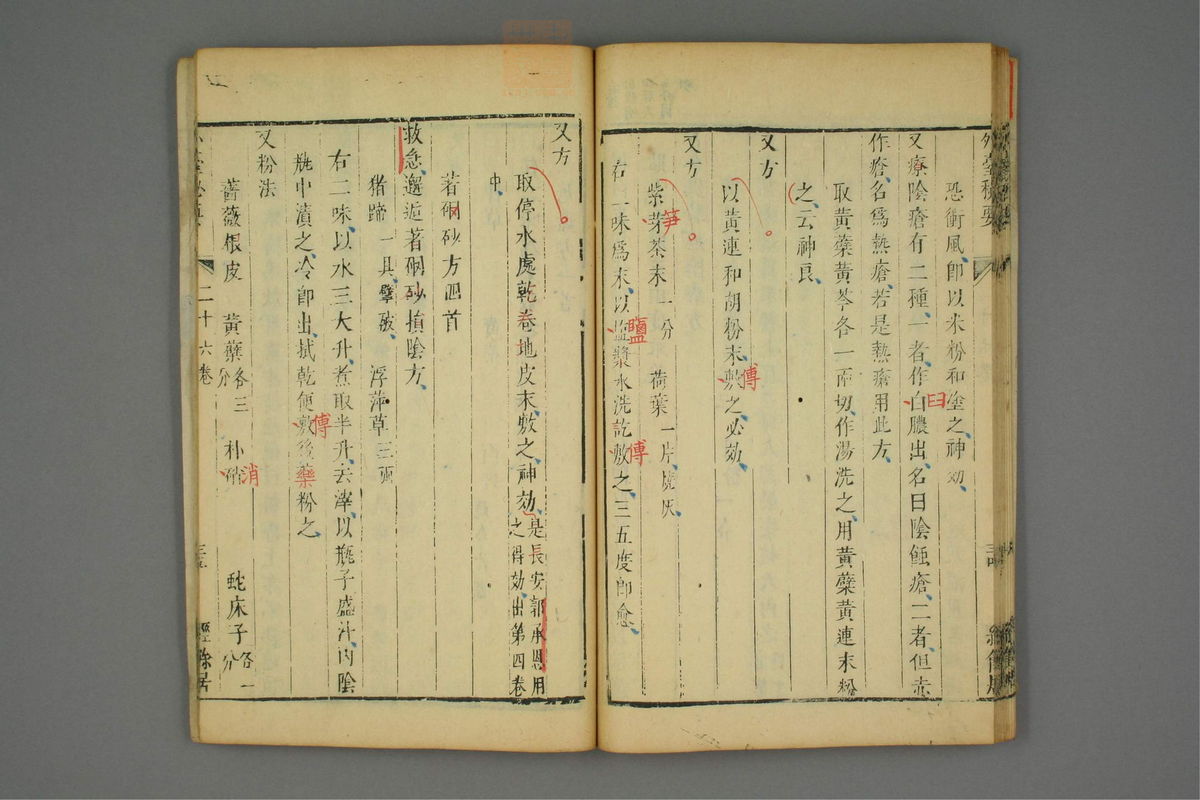 外臺秘要
恐衝風、卽以米粉和塗之、神効、
又療陰瘡有二種、一者、作白膿出、名曰陰蝕瘡、二者、但赤
作瘡、名爲熱瘡、若是熱瘡用此方、
取黃蘗黃芩各一兩切、作湯洗之、用黃蘗黃連末粉
之、云神良、
又方
以黃連和胡粉末、敷之、必効、
傅
又方
紫芽茶末一分　荷葉一片、燒灰、
笋
右一味爲末、以鹽漿水洗訖、敷之、三五度卽愈、
鹽
傅
又方
取停水處乾卷地皮末、敷之、神効、是長安郭承恩用
之得効、出第四卷
中、
若硇砂方迴首
救急、邂逅著硇砂損陰方、
豬蹄一具、擘破、　浮萍草三兩
右二味、以水三大升、煮取半升、去滓、以瓶子盛汁、內陰
瓶中漬之、冷卽出、拭乾便敷後藥粉之、
傅
又粉法
薔薇根皮　黃蘗各三分　朴硝　蛇床子各一分
消
二十六卷
經餘居